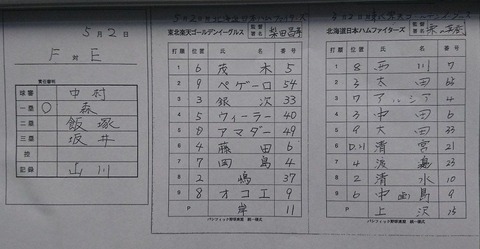 5月2日
F 対 E
責任審判
球審 中村
一塁 ○ 森
二塁 飯塚
三塁 坂井
控
記録 山川
東北楽天ゴールデンイーグルス 監督署名 梨田昌孝
打順 位置 氏名 番号
1 6 茂木 5
2 9 ペゲーロ 54
3 3 銀次 33
4 5 ウィーラー 40
5 アマダー 49
6 4 藤田 6
7 7 岡島 4
8 2 嶋 37
9 8 オコエ 9
P 岸 11
パシフィック野球連盟 統一様式
北海道日本ハムファイターズ 監督署名
打順 位置 氏名 番号
1 8 西川 7
2 太田
3 7 アルシア 4
4 3 中田 6
5 9 大田 33
6 D.H 清宮 21
7 4 渡邉 23
8 2 清水 10
9 6 中島 9
P 上沢 15
パシフィック野球連盟 統一様式